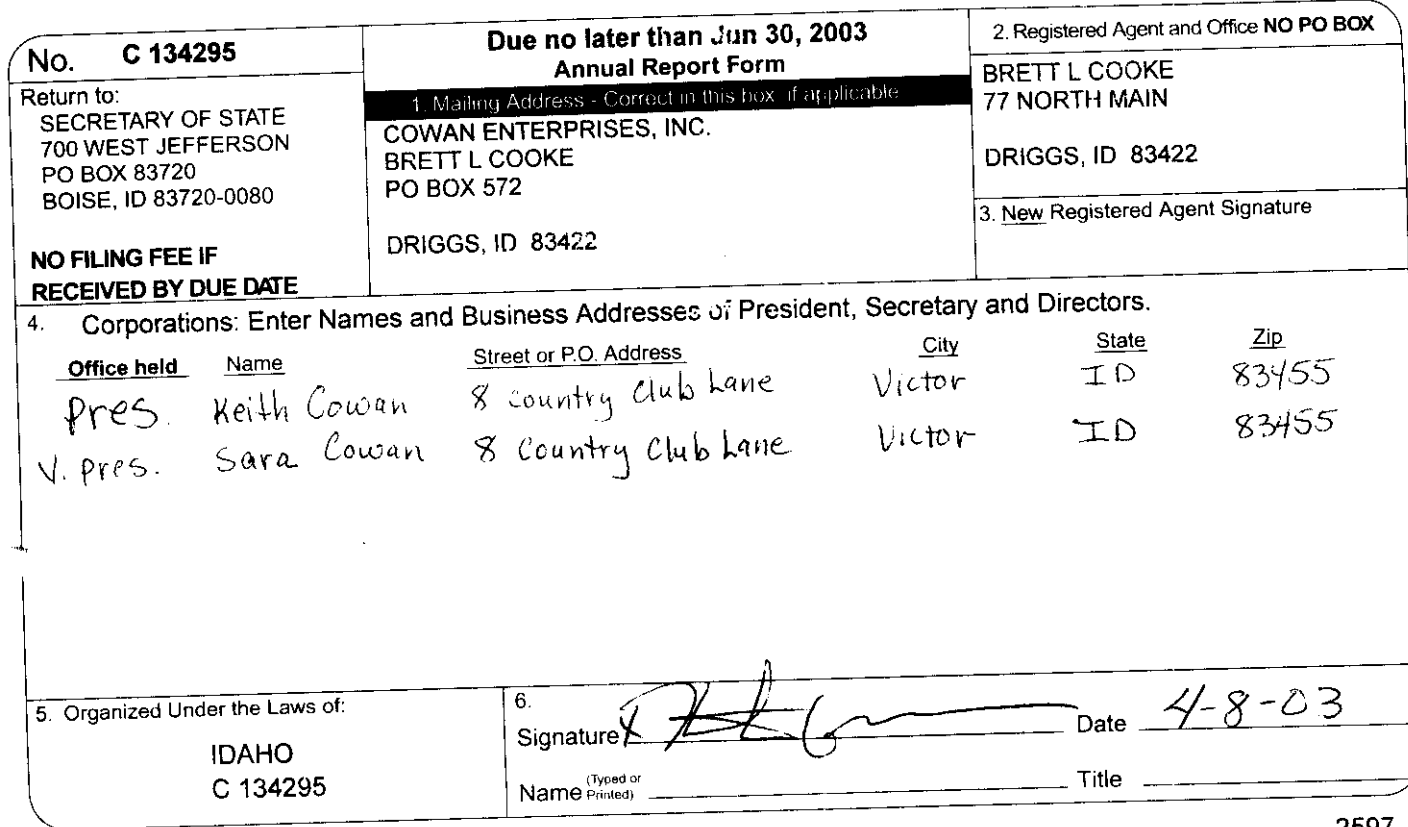 No. C 134295
Return to:
SECRETARY OF STATE
700 WEST JEFFERSON
PO BOX 83720
BOISE, ID 83720-0080
NO FILING FEE IF
RECEIVED BY DUE DATE
Due no later than Jun 30, 2003
Annual Report Form
1. Mailing Address - Correct in this box if applicable
COWAN ENTERPRISES, INC.
BRETT L COOKE
PO BOX 572
DRIGGS, ID 83422
2. Registered Agent and Office NO PO BOX
BRETT L COOKE
77 NORTH MAIN
DRIGGS, ID 83422
3. New Registered Agent Signature
4. Corporations: Enter Names and Business Addresses of President, Secretary and Directors.
Office held Name Street or P.O. Address City State Zip
Pres. Keith Cowan 8 Country Club Lane Victor ID 83455
V. Pres. Sara Cowan 8 Country Club Lane Victor ID 83455
5. Organized Under the Laws of:
IDAHO
C 134295
6.
Signature X Date 4-8-03
Name (Typed or Printed) Title
2597